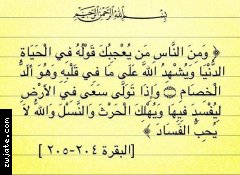 بسم الله الرحمن الرحيم
﴿ وَمِنَ النَّاسِ مَن يُعْجِبُكَ قَوْلُهُ فِي الْحَيَاةِ
الدُّنْيَا وَيُشْهِدُ اللَّهَ عَلَى مَا فِي قَلْبِهِ وَهُوَ أَلَدُّ
الْخِصَامِ ۝ وَإِذَا تَوَلَّى سَعَى فِي الأَرْضِ
لِيُفْسِدَ فِيهَا وَيُهْلِكَ الْحَرْثَ وَالنَّسْلَ وَاللَّهُ لاَ
يُحِبُّ الْفَسَادَ ﴾
[البقرة ٢٠٤-٢٠٥ ]
zwjate.com